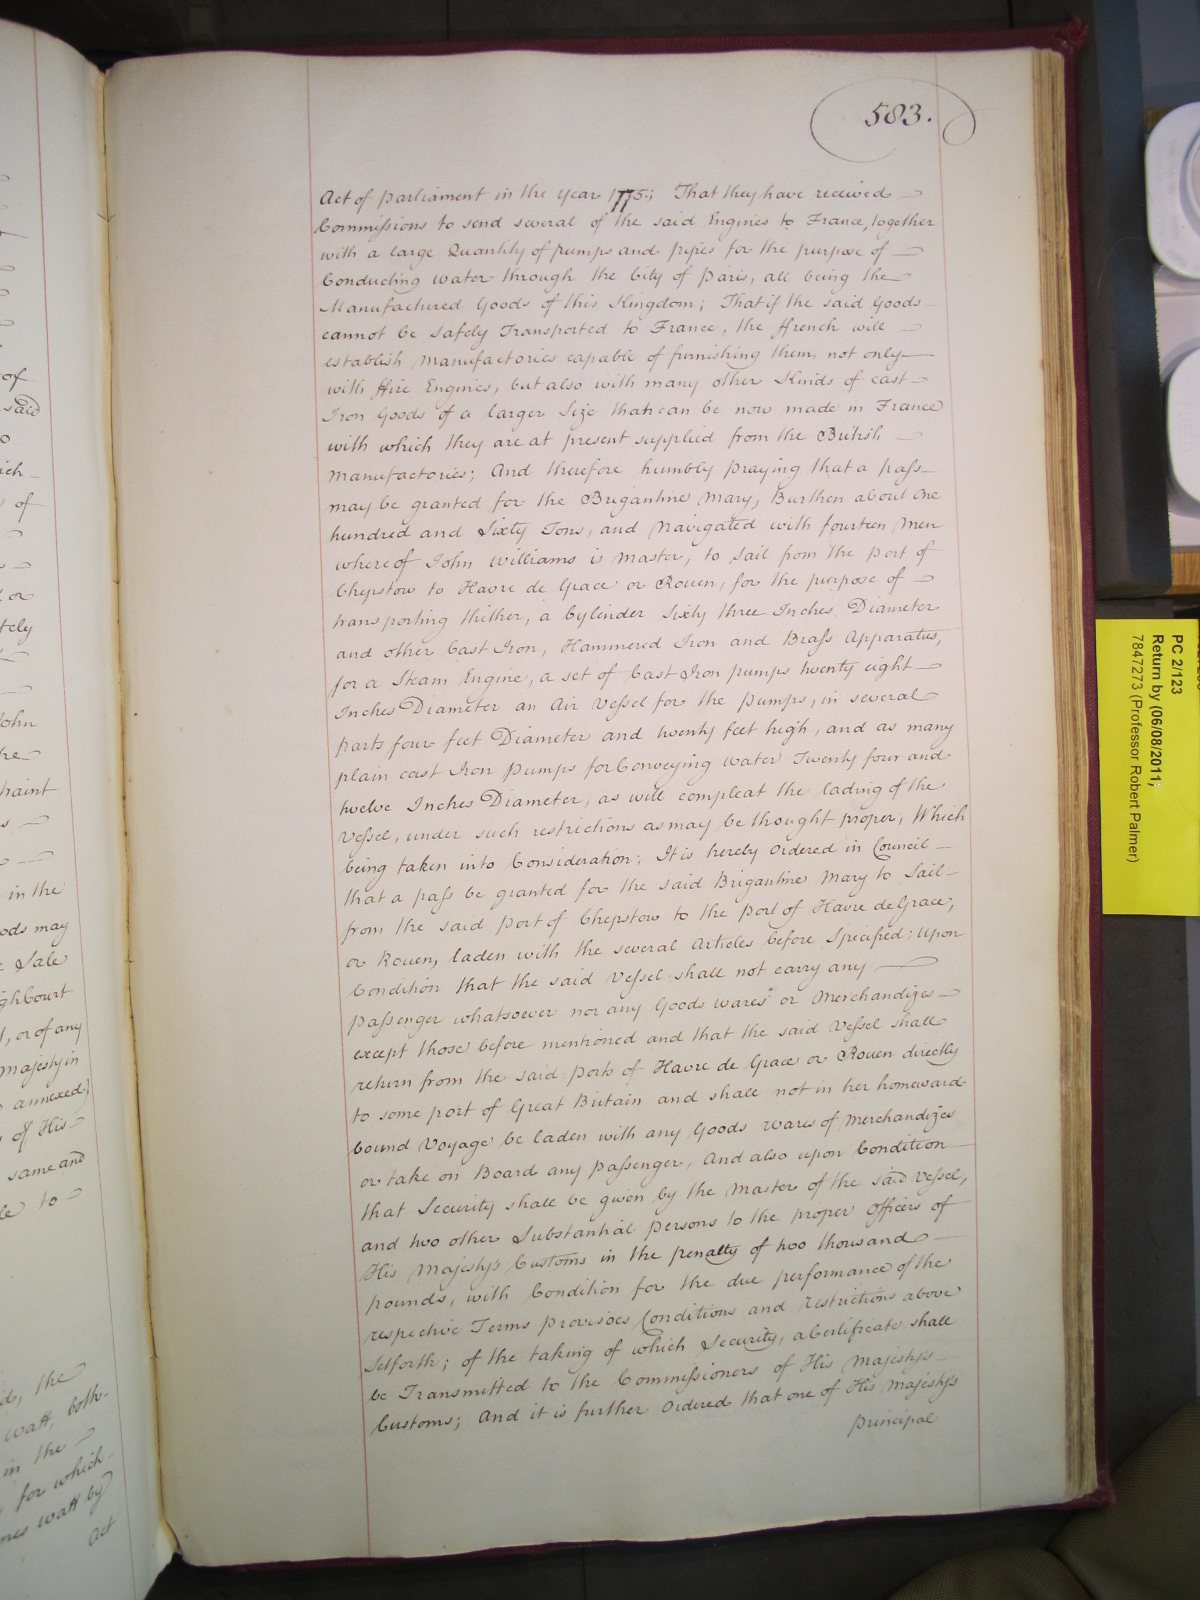 583.
Act of Parliament in the Year 1775; That they have received
Commissions to send several of the said Engines to France, together
with a large Quantity of pumps and pipes for the purpose of
Conducting water through the City of Paris, all being the
Manufactured Goods of this Kingdom; That if the said Goods
cannot be safely Transported to France, the ffrench will
establish Manufactories capable of furnishing them, not only
with ffire Engines, but also with many other Kinds of cast
Iron Goods of a larger Size that can be now made in France
with which they are at present supplied from the British
Manufactories; And therefore humbly praying that a pass
may be granted for the Brigantine Mary, Burthen about One
hundred and Sixty Tons, and Navigated with fourteen Men
whereof John Williams is Master, to sail from the Port of
Chepstow to Havre de Grace or Rouen, for the purpose of
transporting thither, a Cylinder Sixty three Inches Diameter
and other Cast Iron, Hammered Iron and Brass Apparatus,
for a Steam Engine, a set of Cast Iron pumps twenty eight
Inches Diameter an Air Vessel for the Pumps, in several
parts four feet Diameter and twenty feet high, and as many
plain cast Iron Pumps for Conveying water Twenty four and
twelve Inches Diameter, as will compleat the lading of the
Vessel, under such restrictions as may be thought proper, Which
being taken into Consideration; It is hereby Ordered in Council
that a pass be granted for the said Brigantine Mary to Sail
from the said Port of Chepstow to the Port of Havre de Grace,
or Rouen, laden with the several Articles before Specified: Upon
Condition that the said Vessel shall not carry any
Passenger whatsoever nor any Goods wares or Merchandizes
except those before mentioned and that the said Vessel shall
return from the said Ports of Havre de Grace or Rouen directly
to some port of Great Britain and shall not in her homeward
bound Voyage be laden with any Goods wares of Merchandizes
or take on Board any Passenger, And also upon Condition
that Security shall be given by the Master of the said Vessel,
and two other Substantial Persons to the proper Officers of
His Majesty's Customs in the penalty of two thousand
pounds, with Condition for the due performance of the
respective Terms Provisoes Conditions and restrictions above
Setforth; of the taking of which Security, a Certificate shall
be Transmitted to the Commissioners of His Majesty's
Customs; And it is further Ordered that one of His Majesty's
Principal
of
said
of
or
John
in the
Sale
Court
, or of any
Majesty in
annexed;
of His
same and
to
the
Watt, both
in the
for which
Watt by
Act
PC 2/123
Return by (06/08/2011;
7847273 (Professor Robert Palmer)